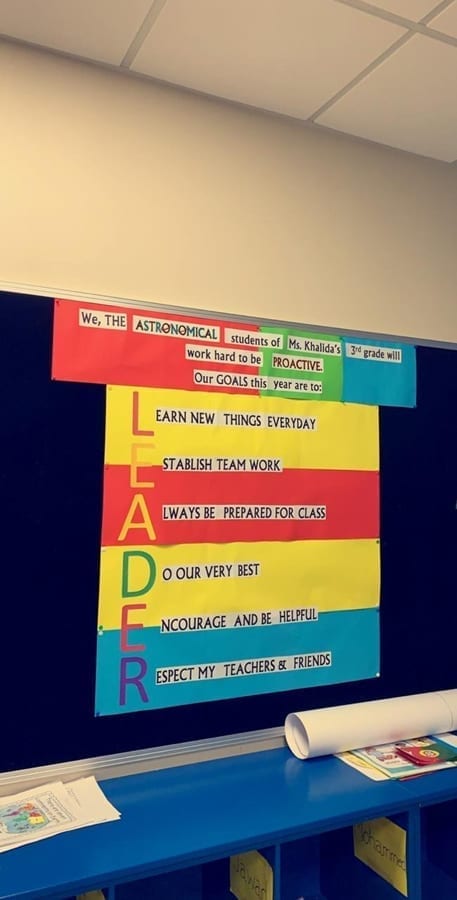 We, THE ASTRONOMICAL students of Ms. Khalida's 3rd grade will
work hard to be PROACTIVE.
Our GOALS this year are to:
LEARN NEW THINGS EVERYDAY
ESTABLISH TEAM WORK
ALWAYS BE PREPARED FOR CLASS
DO OUR VERY BEST
ENCOURAGE AND BE HELPFUL
RESPECT MY TEACHERS & FRIENDS